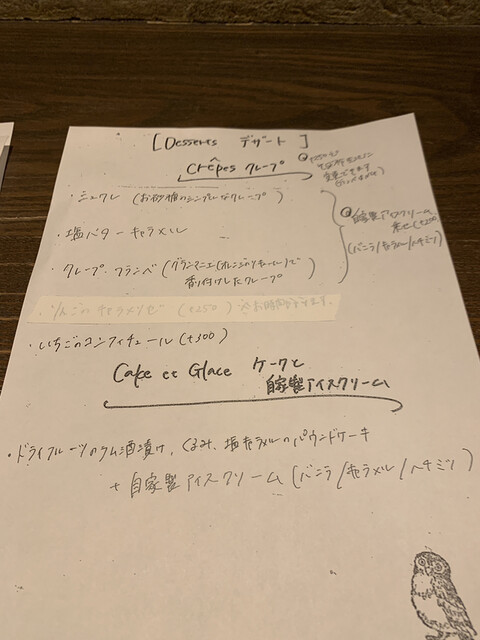 [Desserts デザート]
Crêpes クレープ
・シュクレ (お砂糖のシンプルなクレープ)
・塩バターキャラメル
・クレープ・フランベ (グランマニエ(オレンジのリキュール)で
香り付けしたクレープ)
自家製アイスクリーム
(バニラ/キャラメル/ハチミツ)
りんごのキャラメリゼ (+250) ※お時間
・いちごのコンフィチュール (+300)
Cake et Glace ケークと
自家製アイスクリーム
・ドライフルーツのラム酒漬け、くるみ、塩キャラメルのパウンドケーキ
+ 自家製アイスクリーム (バニラ/キャラメル/ハチミツ)